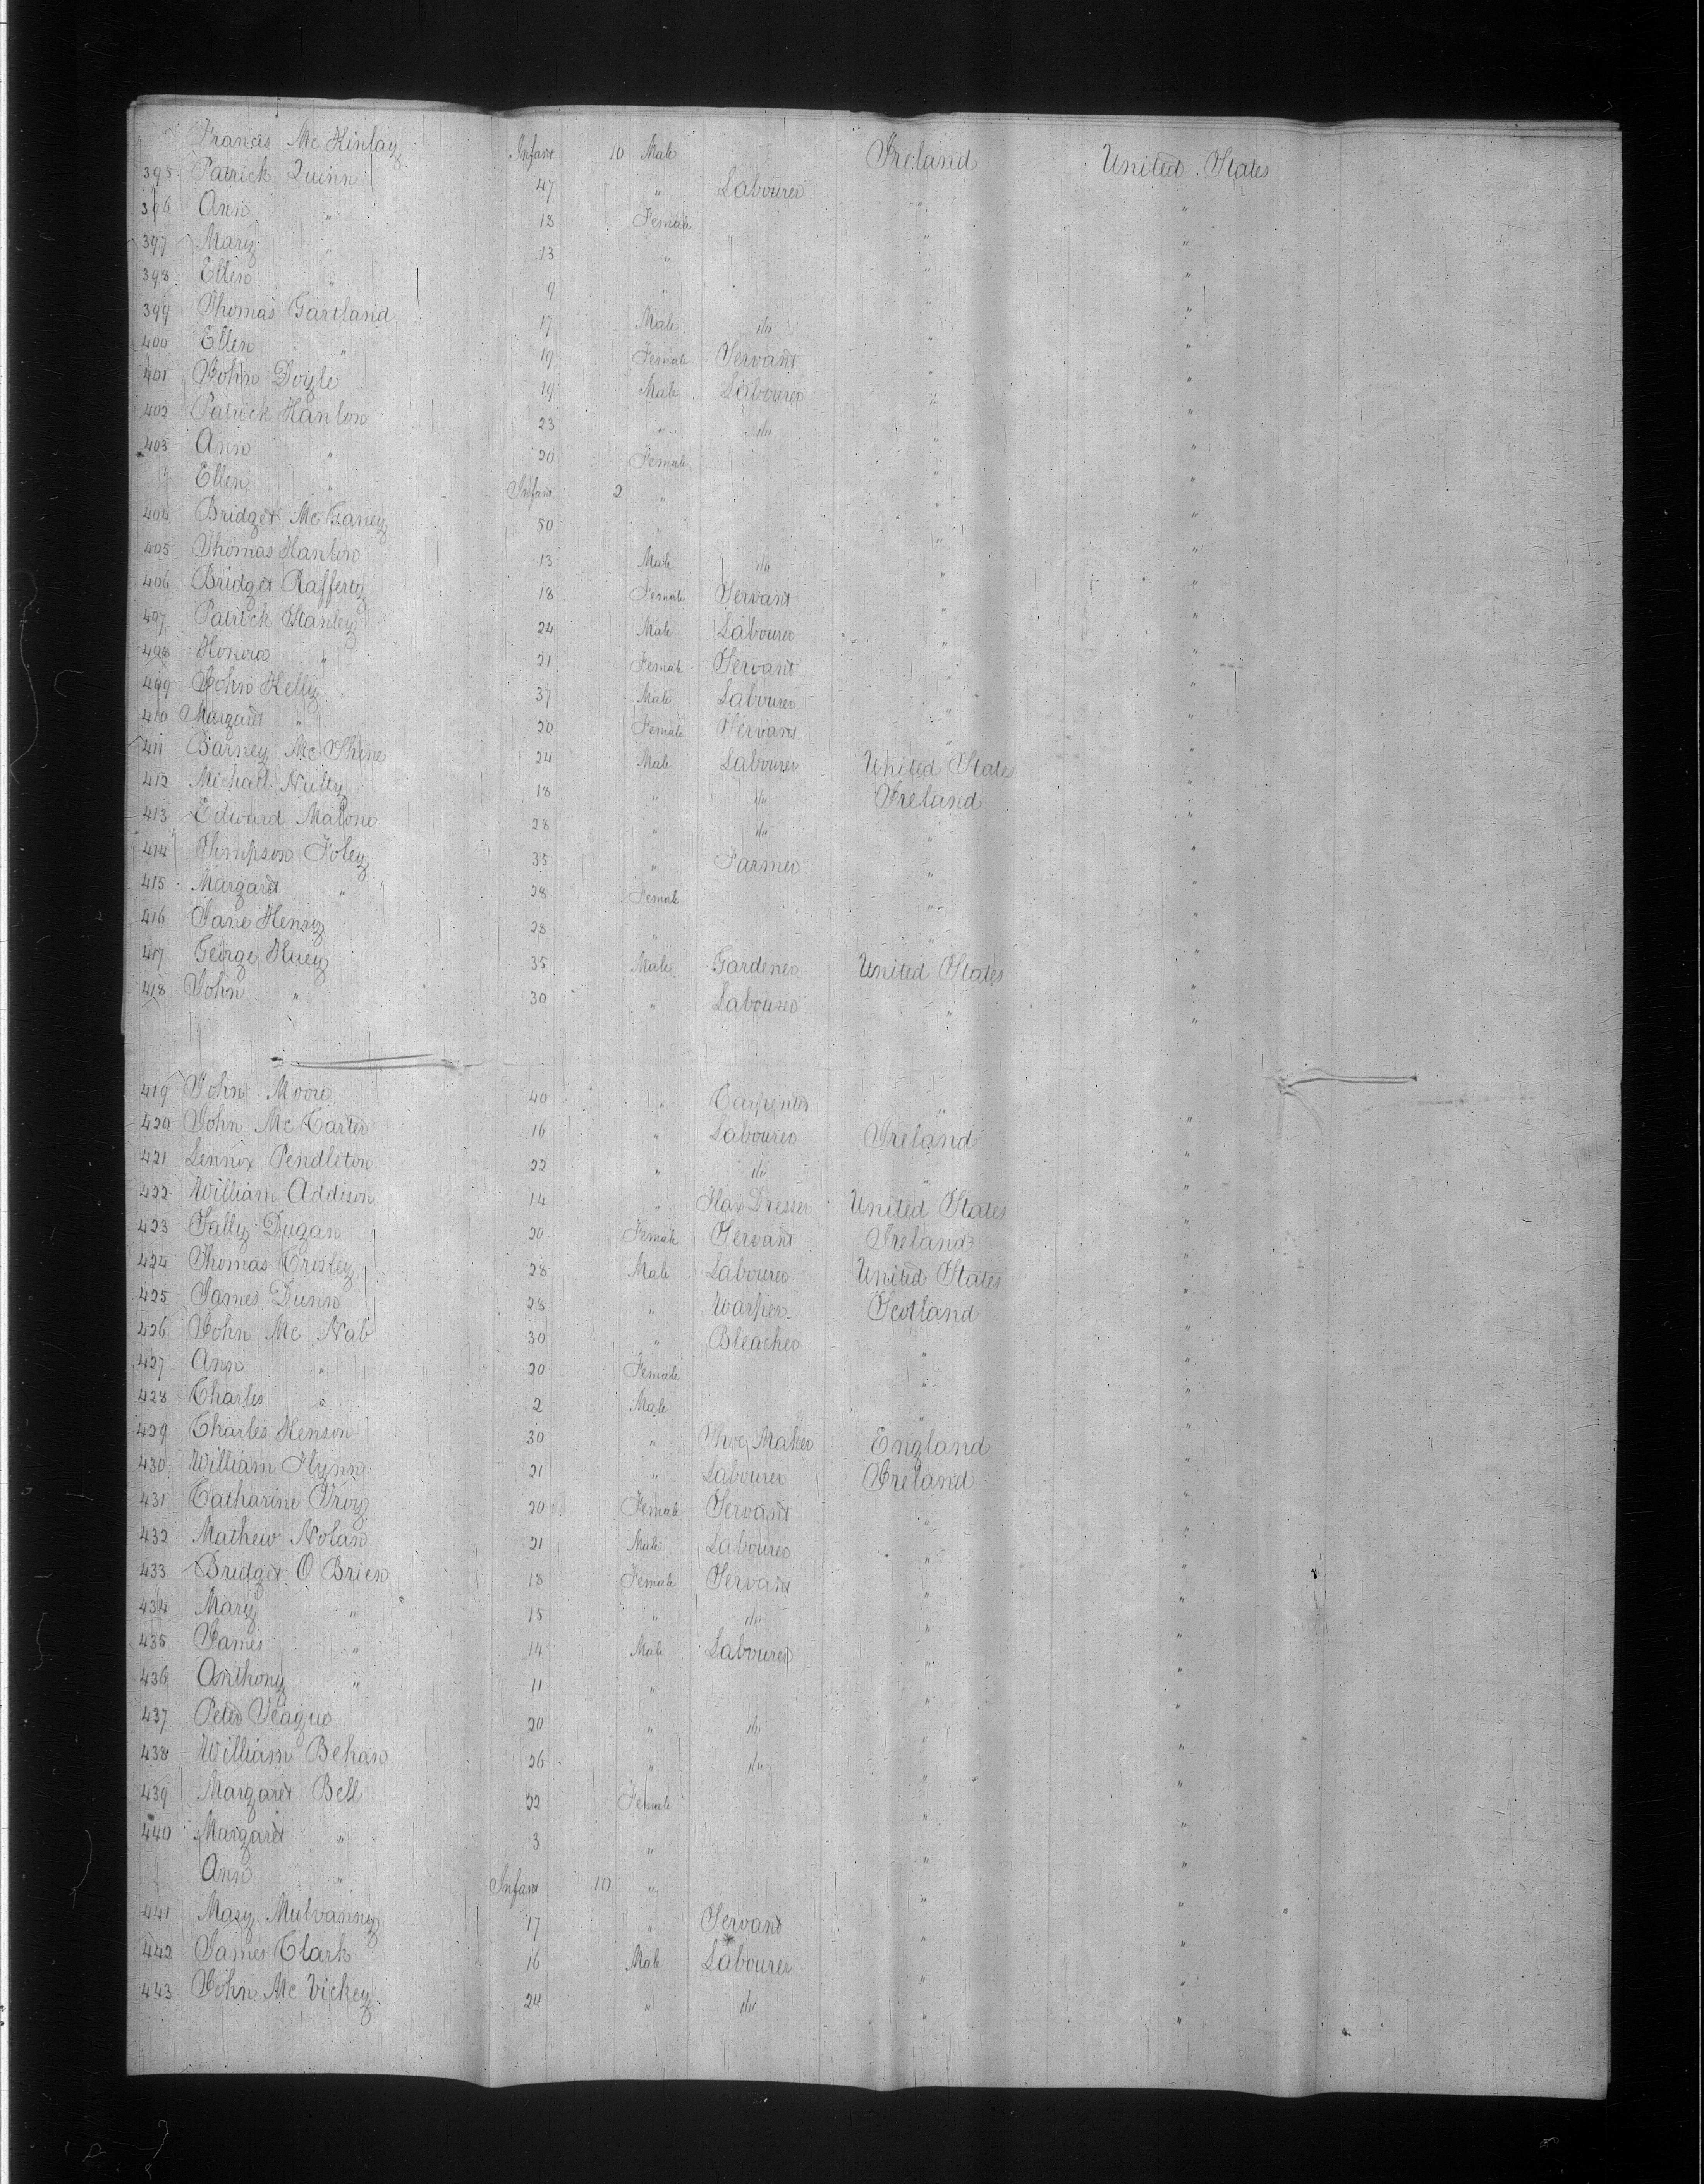 Francis Mc Kinlay Infant 10 Male Ireland United States
395 Patrick Quinn 47 " Labourer " "
396 Ann " 18 Female " "
397 Mary " 13 " " "
398 Ellen " 9 " " "
399 Thomas Gartland 17 Male do " "
400 Ellen " 19 Female Servant " "
401 John Doyle 19 Male Labourer " "
402 Patrick Hanlon 23 " do " "
403 Ann " 20 Female " "
Ellen " Infant 2 " " "
404 Bridget Mc Ganey 50 " " "
405 Thomas Hanlon 13 Male do " "
406 Bridget Rafferty 18 Female Servant " "
407 Patrick Stanley 24 Male Labourer " "
408 Honora " 21 Female Servant " "
409 John Kelly 37 Male Labourer " "
410 Margaret " 20 Female Servant " "
411 Barney Mc Shine 24 Male Labourer United States "
412 Michael Nulty 18 " do Ireland "
413 Edward Malone 28 " do " "
414 Simpson Foley 35 " Farmer " "
415 Margaret " 28 Female " "
416 Jane Henry 28 " " "
417 George Huey 35 Male Gardener United States "
418 John " 30 " Labourer " "
419 John Moore 40 " Carpenter " "
420 John Mc Carter 16 " Labourer Ireland "
421 Lennox Pendleton 22 " do " "
422 William Addison 14 " Flax Dresser United States "
423 Sally Dugan 20 Female Servant Ireland "
424 Thomas Crosley 28 Male Labourer United States "
425 James Dunn 28 " Warper Scotland "
426 John Mc Nab 30 " Bleacher " "
427 Ann " 20 Female " "
428 Charles " 2 Male " "
429 Charles Henson 30 " Shoe Maker England "
430 William Flynn 21 " Labourer Ireland "
431 Catharine Troy 20 Female Servant " "
432 Mathew Nolan 21 Male Labourer " "
433 Bridget O Brien 18 Female Servant " "
434 Mary " 15 " do " "
435 James " 14 Male Labourer " "
436 Anthony " 11 " " "
437 Peter Teague 20 " do " "
438 William Behan 26 " do " "
439 Margaret Bell 22 Female " "
440 Margaret " 3 " " "
Ann " Infant 10 " " "
441 Mary Mulvanny 17 " Servant " "
442 James Clark 16 Male Labourer " "
443 John Mc Vickey 24 " do " "